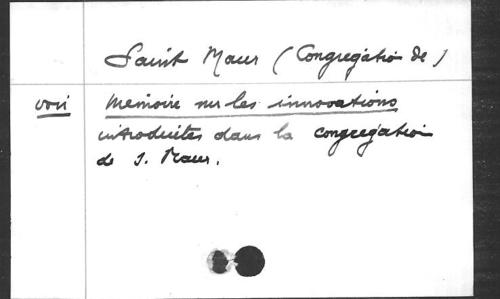 Saint Maur (Congrégation de)
voir Mémoire sur les innovations
introduites dans la congrégation
de S. Maur.